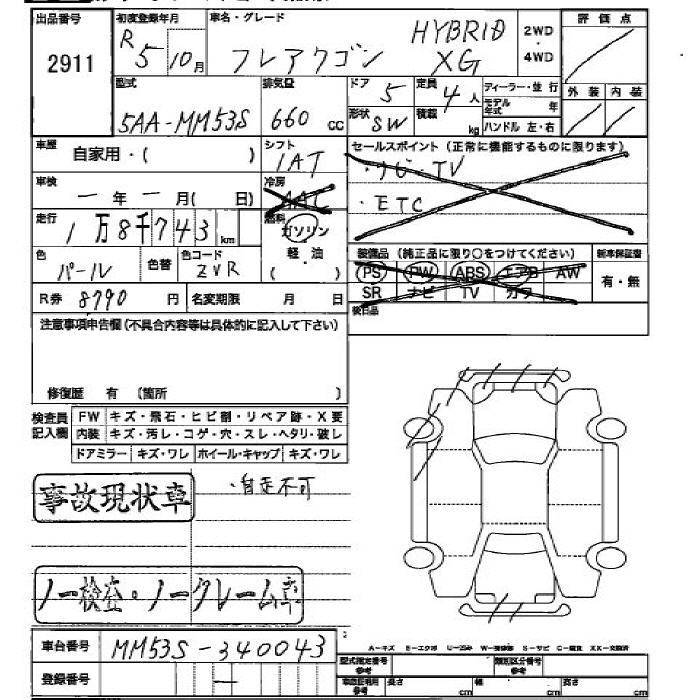 出品番号 初度登録年月 車名・グレード 2WD・4WD 評価点
2911 R5 10月 フレアワゴン HYBRID XG
型式 排気量 ドア 5 定員 4人 ディーラー・並行 外装 内装
5AA-MM53S 660cc 形状 SW 積載 kg モデル年式 年 ハンドル 左・右
車歴 自家用・( ) シフト 1AT セールスポイント(正常に機能するものに限ります)
車検 一年一月( 日) 冷房 AAC ・ナビ・TV
・ETC
走行 1万8千743km 燃料 ガソリン・軽・油( )
色 パール 色替 色コード ZVR 装備品(純正品に限り○をつけてください) 新車保証書
PS PW ABS エアB AW 有・無
SR ナビ TV カワ
R券 8790円 名変期限 月 日 後日品
注意事項申告欄(不具合内容等は具体的に記入して下さい)
修復歴 有 (箇所 )
検査員記入欄 FW キズ・飛石・ヒビ割・リペア跡・X要
内装 キズ・汚レ・コゲ・穴・スレ・ヘタリ・破レ
ドアミラー キズ・ワレ ホイール・キャップ キズ・ワレ
事故現状車 ・自走不可
ノー検査・ノークレーム車
A-キズ E-エクボ U-凹み W-補修跡 S-サビ C-腐食 XX-交換済
車台番号 MM53S-340043 型式指定番号 参考 類別区分番号 参考
登録番号 ― 車庫証明用 参考 長さ cm 幅 cm 高さ cm